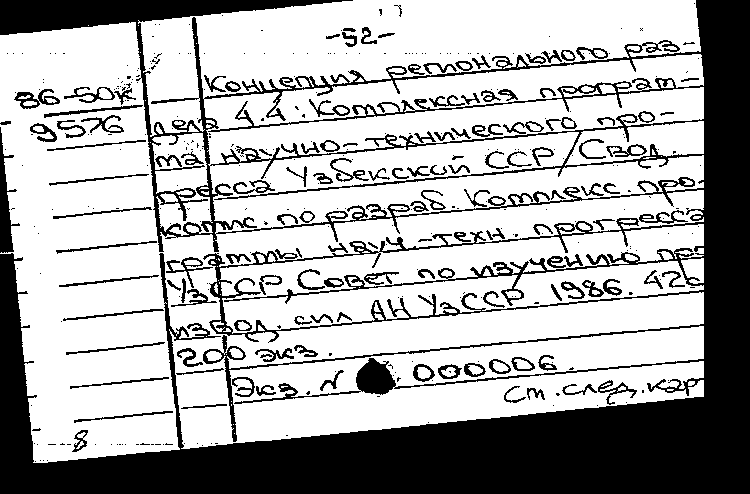 -52-
86-50к
9576
Концепция регионального раз-
дела 4.4: Комплексная програм-
ма научно-технического про-
гресса Узбекской ССР / Свод.
комис. по разраб. Комплекс. про-
граммы науч.-техн. прогресса
УзССР, Совет по изучению про
извод. сил АН УзССР. 1986. 42с
200 экз.
Экз. N 000006.
См. след. кар
8